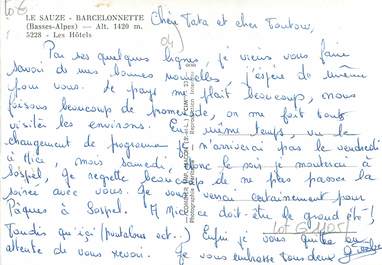 Lot G
LE SAUZE - BARCELONNETTE
(Basses-Alpes) — Alt. 1420 m.
5228 - Les Hôtels
(04)
Chère Tata et cher Tonton,
Par ces quelques lignes, je viens vous faire
savoir de mes bonnes nouvelles, j'espère de même
pour vous. Le pays me plaît beaucoup, nous
faisons beaucoup de promenade, on me fait tout
visités les environs. En même temps, vu le
changement de programme je n'arriverai pas le vendredi
à Nice, mais samedi, donc le soir je monterai à
Sospel, je regrette beaucoup de ne pas passer la
soirée avec vous. Je vous verrai certainement pour
Pâques à Sospel. A Nice ce doit-être le grand été !
Tandis qu'ici (pantalons ect..) Enfin je vous quitte en
attente de vous revoir. Je vous embrasse tous deux
Lot G 1105